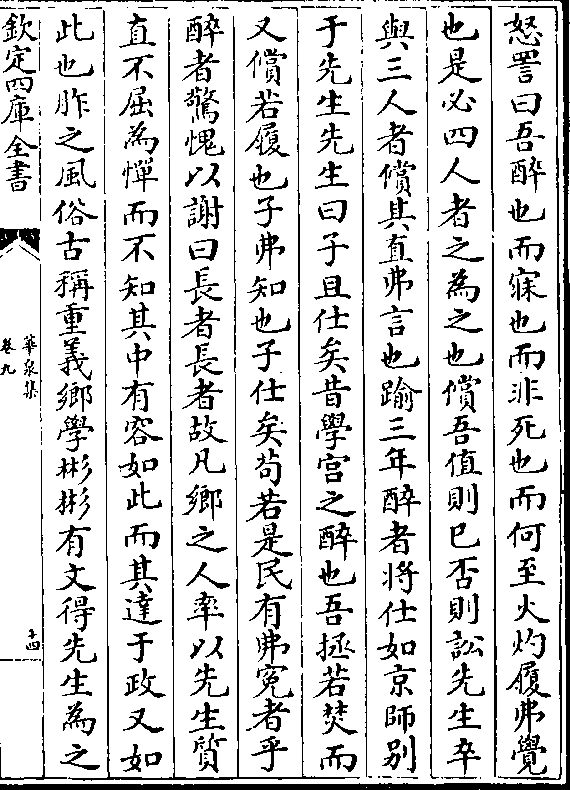 怒詈曰吾醉也而寐也而非死也而何至火灼履弗覺
也是必四人者之為之也償吾值則已否則訟先生卒
與三人者償其直弗言也踰三年醉者將仕如京師别
于先生先生曰子且仕矣昔學宫之醉也吾拯若焚而
又償若履也子弗知也子仕矣苟若是民有弗寃者乎
醉者驚愧以謝曰長者長者故凡鄉之人率以先生質
直不屈為憚而不知其中有容如此而其達于政又如
此也胙之風俗古稱重義鄉學彬彬有文得先生為之
欽定四庫全書
華泉集
卷九
十四